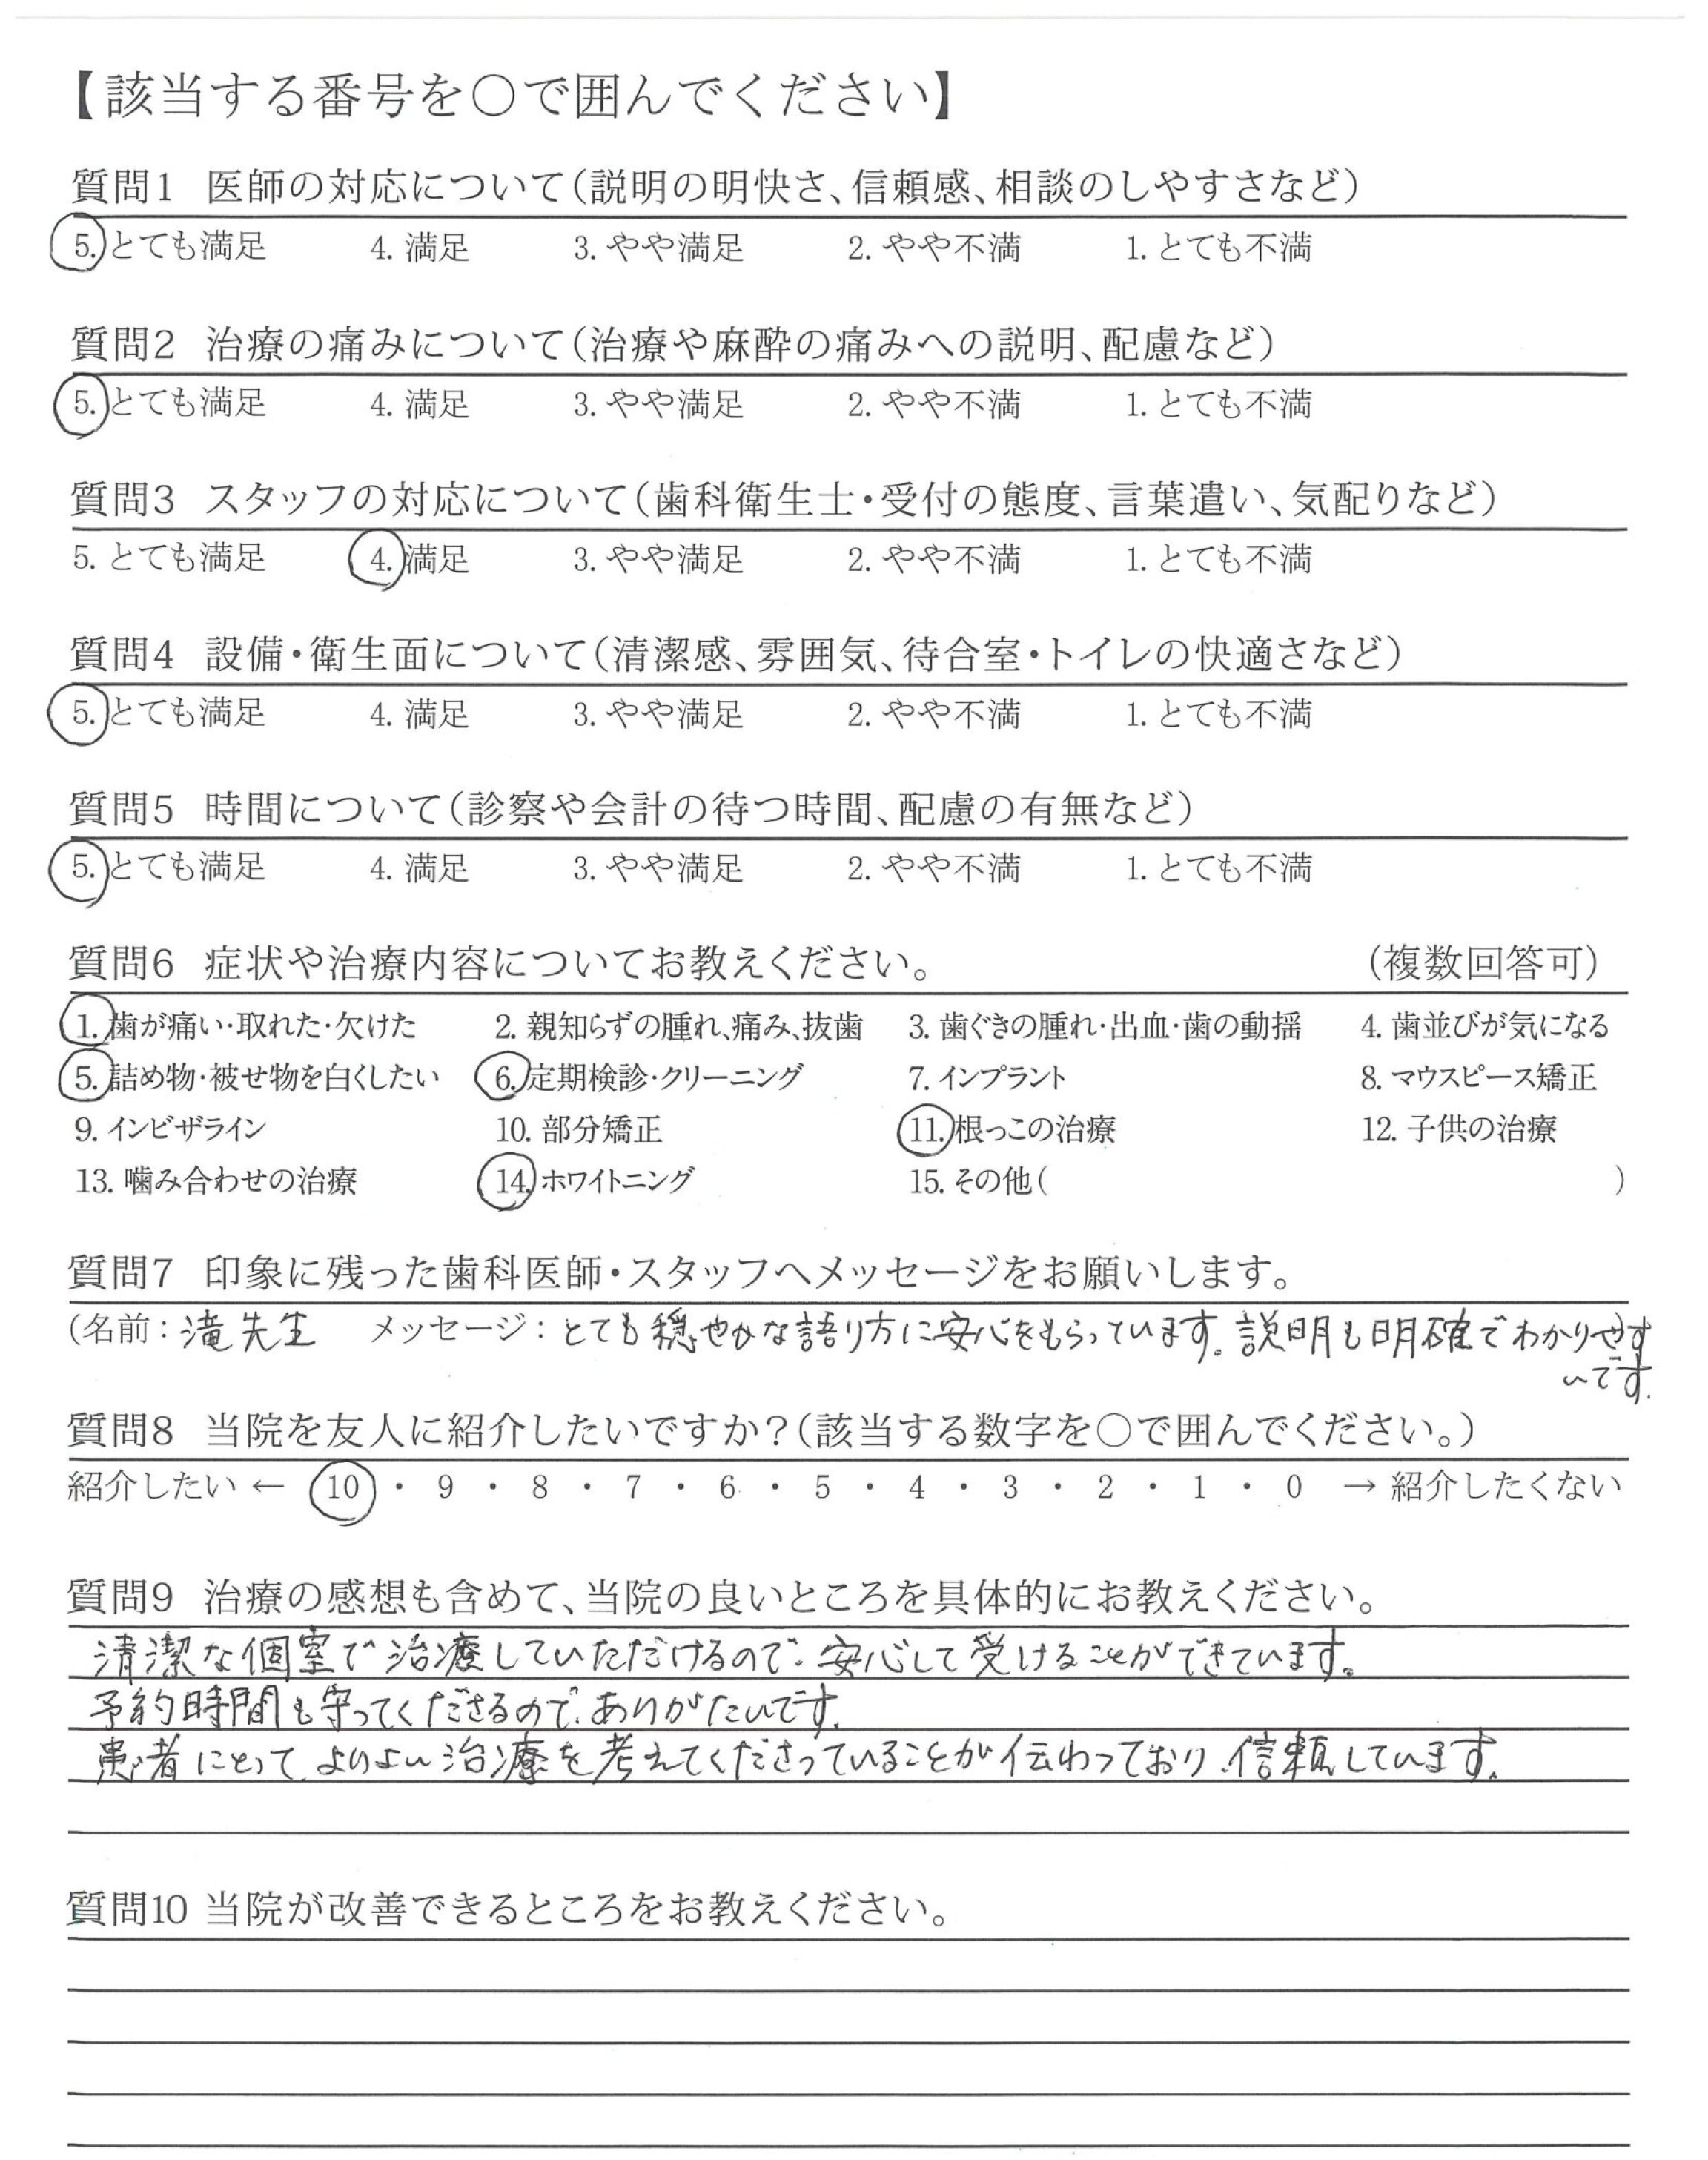 【該当する番号を○で囲んでください】
質問1 医師の対応について(説明の明快さ、信頼感、相談のしやすさなど)
5. とても満足 4. 満足 3. やや満足 2. やや不満 1. とても不満
質問2 治療の痛みについて(治療や麻酔の痛みへの説明、配慮など)
5. とても満足 4. 満足 3. やや満足 2. やや不満 1. とても不満
質問3 スタッフの対応について(歯科衛生士・受付の態度、言葉遣い、気配りなど)
5. とても満足 4. 満足 3. やや満足 2. やや不満 1. とても不満
質問4 設備・衛生面について(清潔感、雰囲気、待合室・トイレの快適さなど)
5. とても満足 4. 満足 3. やや満足 2. やや不満 1. とても不満
質問5 時間について(診察や会計の待つ時間、配慮の有無など)
5. とても満足 4. 満足 3. やや満足 2. やや不満 1. とても不満
質問6 症状や治療内容についてお教えください。 (複数回答可)
1. 歯が痛い・取れた・欠けた 2. 親知らずの腫れ、痛み、抜歯 3. 歯ぐきの腫れ・出血・歯の動揺 4. 歯並びが気になる
5. 詰め物・被せ物を白くしたい 6. 定期検診・クリーニング 7. インプラント 8. マウスピース矯正
9. インビザライン 10. 部分矯正 11. 根っこの治療 12. 子供の治療
13. 噛み合わせの治療 14. ホワイトニング 15. その他( )
質問7 印象に残った歯科医師・スタッフへメッセージをお願いします。
(名前：滝先生 メッセージ：とても穏やかな語り方に安心をもらっています。説明も明確でわかりやす
いです。
質問8 当院を友人に紹介したいですか？(該当する数字を○で囲んでください。)
紹介したい ← 10 ・ 9 ・ 8 ・ 7 ・ 6 ・ 5 ・ 4 ・ 3 ・ 2 ・ 1 ・ 0 → 紹介したくない
質問9 治療の感想も含めて、当院の良いところを具体的にお教えください。
清潔な個室で治療していただけるので、安心して受けることができています。
予約時間も守ってくださるので、ありがたいです。
患者にとって、よりよい治療を考えてくださっていることが伝わっており、信頼しています。
質問10 当院が改善できるところをお教えください。